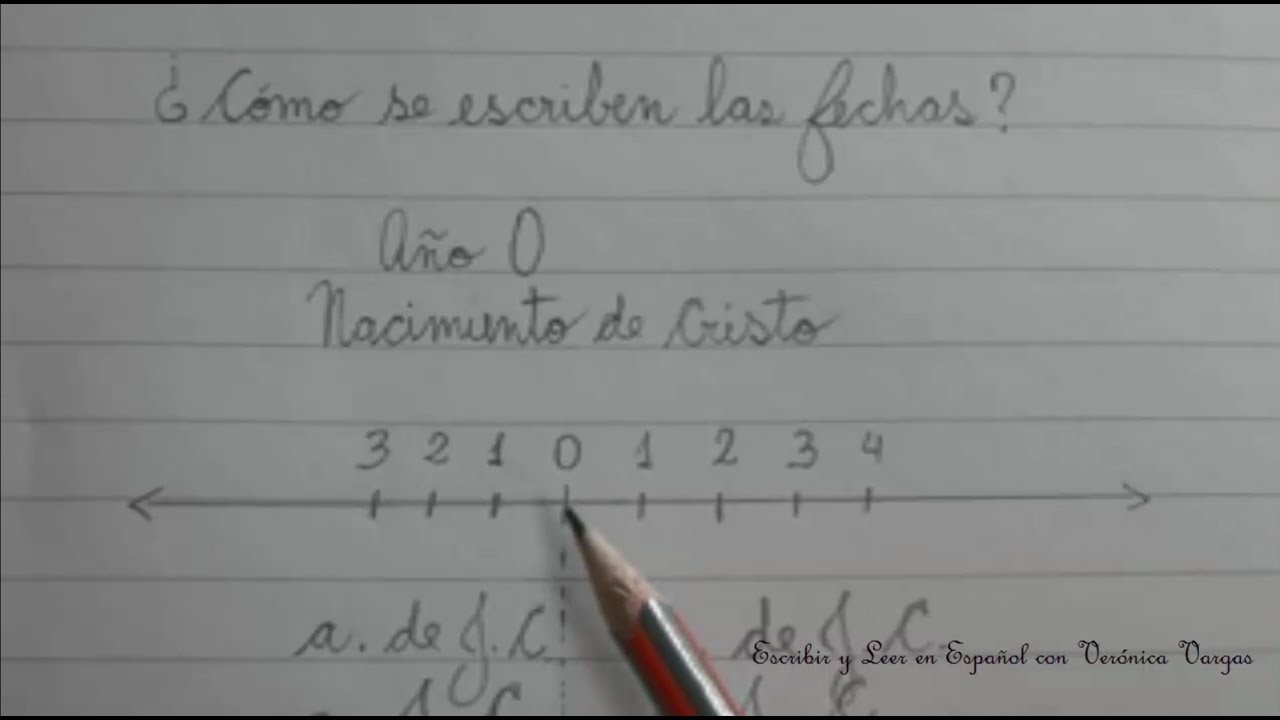 ¿Cómo se escriben las fechas?
Año 0
Nacimiento de Cristo
3 2 1 0 1 2 3 4
a. de J.C. de J.C.
Escribir y Leer en Español con Verónica Vargas